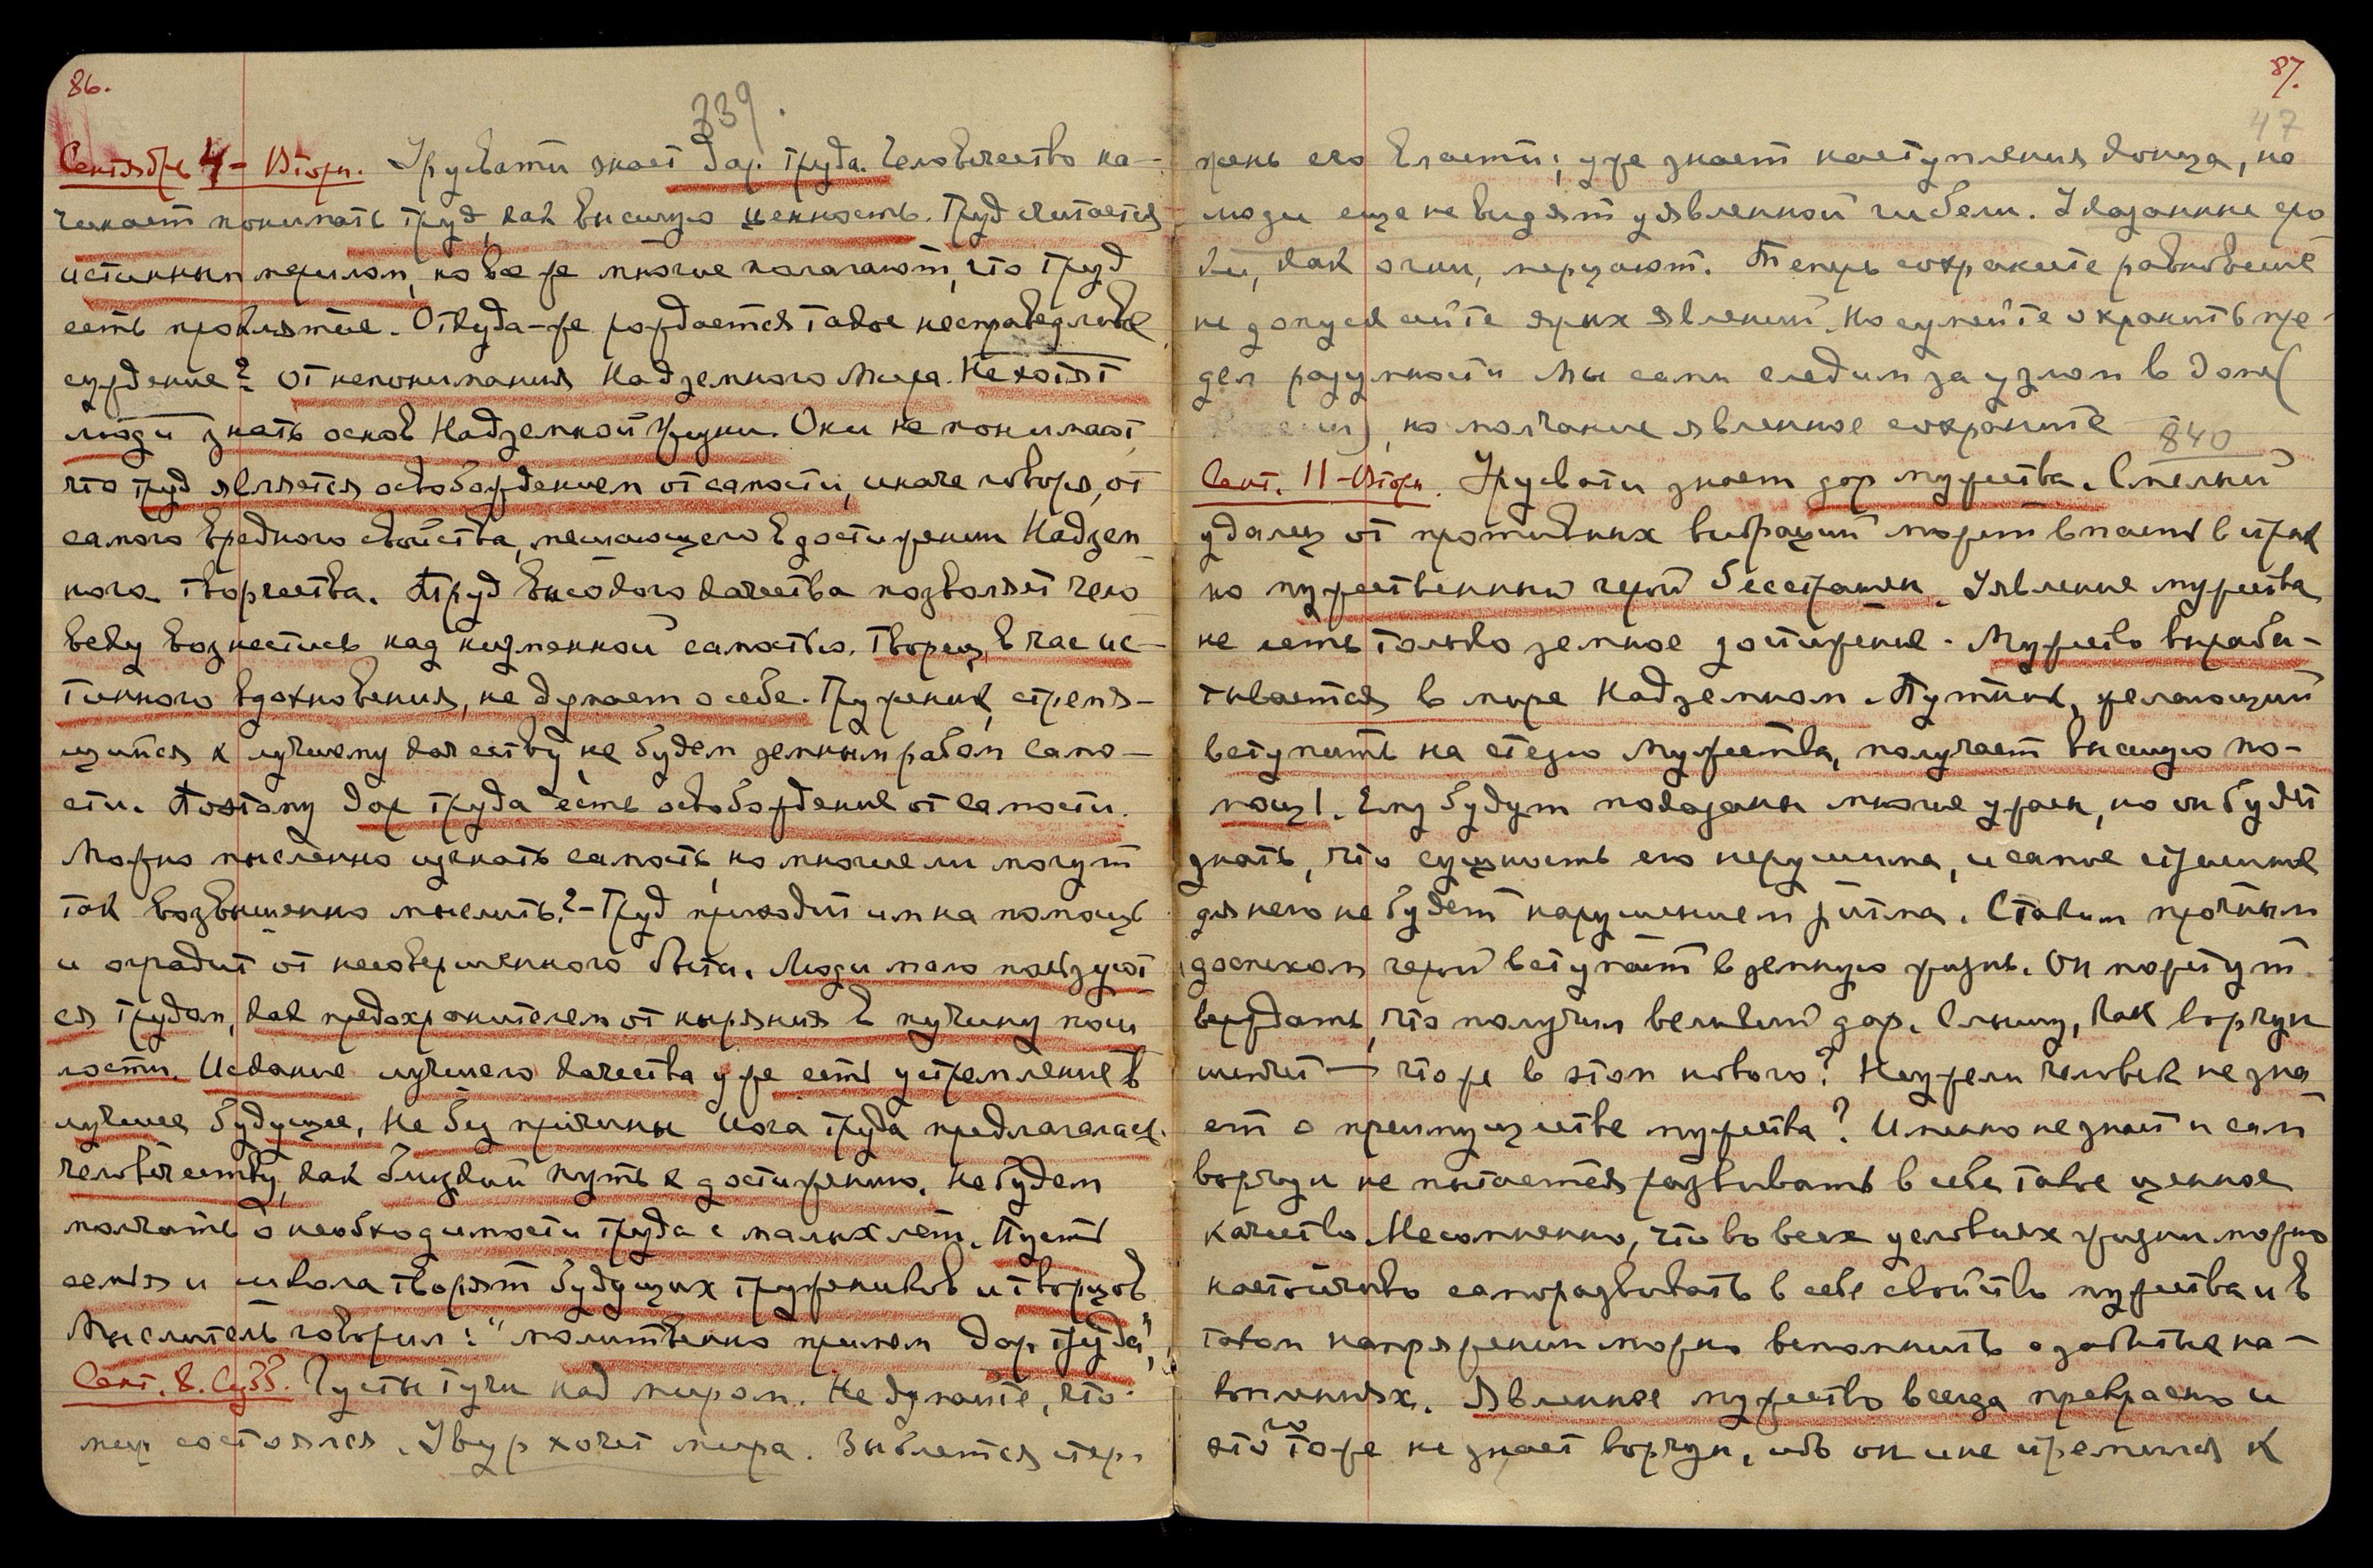 86.
839.
Сентябрь 4 – Вторн. Урусвати знает дар труда. Человечество на-
чинает понимать труд, как высшую ценность. Труд считается
истинным мерилом, но все же многие полагают, что труд
есть проклятие. Откуда-же рождается такое несправедливое
суждение? От непонимания Надземного Мира. Не хотят
люди знать основ Надземной жизни. Они не понимают,
что труд является освобождением от самости, иначе говоря, от
самого вредного свойства, мешающего в достижении Надзем
ного творчества. Труд высокого качества позволяет чело
веку вознестись над низменной самостью. Творец, в час ис-
тинного вдохновения, не думает о себе. Труженик, стремя-
щийся к лучшему качеству, не будет земным рабом само-
сти. Поэтому дар труда есть освобождение от самости.
Можно мысленно изгнать самость, но многие ли могут
так возвышенно мыслить? – Труд приходит им на помощь
и оградит от несовершенного быта. Люди мало пользуют
ся трудом, как предохранителем от ныряния в пучину пош
лости. Искание лучшего качества уже есть устремление в
лучшее будущее. Не без причины Йога труда предлагалась
человечеству, как близкий путь к достижению. Не будем
молчать о необходимости труда с малых лет. Пусть
семья и школа творят будущих тружеников и творцов.
Мыслитель говорил: "молитвенно примем дар труда",
Сент. 8. Субб. Густы тучи над миром. Не думайте, что
мир состоялся. Увур хочет мира. Зыблется стер
87.
47
жень его власти; уже знает наступления конца, но
люди еще не видят уявленной гибели. Указанные сро
ки, как огни, мерцают. Теперь сохраните равновесие
не допускайте ярых явлений. Но сумейте охранить пре-
дел разумности Мы сами следим за узлом в доме (
но молчание явленное сохраните
840
Сент. 11 – Вторн. Урусвати знает дар мужества. Смелый
удалец от противных вибраций может впасть в страх
но мужественный герой бесстрашен. Уявление мужества
не есть только земное достижение. Мужество выраба-
тывается в мире Надземном. Путник, желающий
вступить на стезю мужества, получает высшую по-
мощь. Ему будут показаны многие ужасы, но он будет
знать, что сущность его нерушима, и самое страшное
для него не будет нарушением ритма. С таким прочным
доспехом герой вступает в земную жизнь. Он может ут
верждать, что получил великий дар. Слышу, как ворчун
шепчет – что же в этом нового? Неужели человек не зна
ет о преимуществе мужества? Именно не знает и сам
ворчун не пытается развивать в себе такое ценное
качество. Несомненно, что во всех условиях жизни можно
настойчиво саморазвивать в себе свойство мужества и в
таком напряжении можно вспомнить о забытых на-
коплениях. Явленное мужество всегда прекрасно и
этого тоже не знает ворчун, ибо он и не стремился к